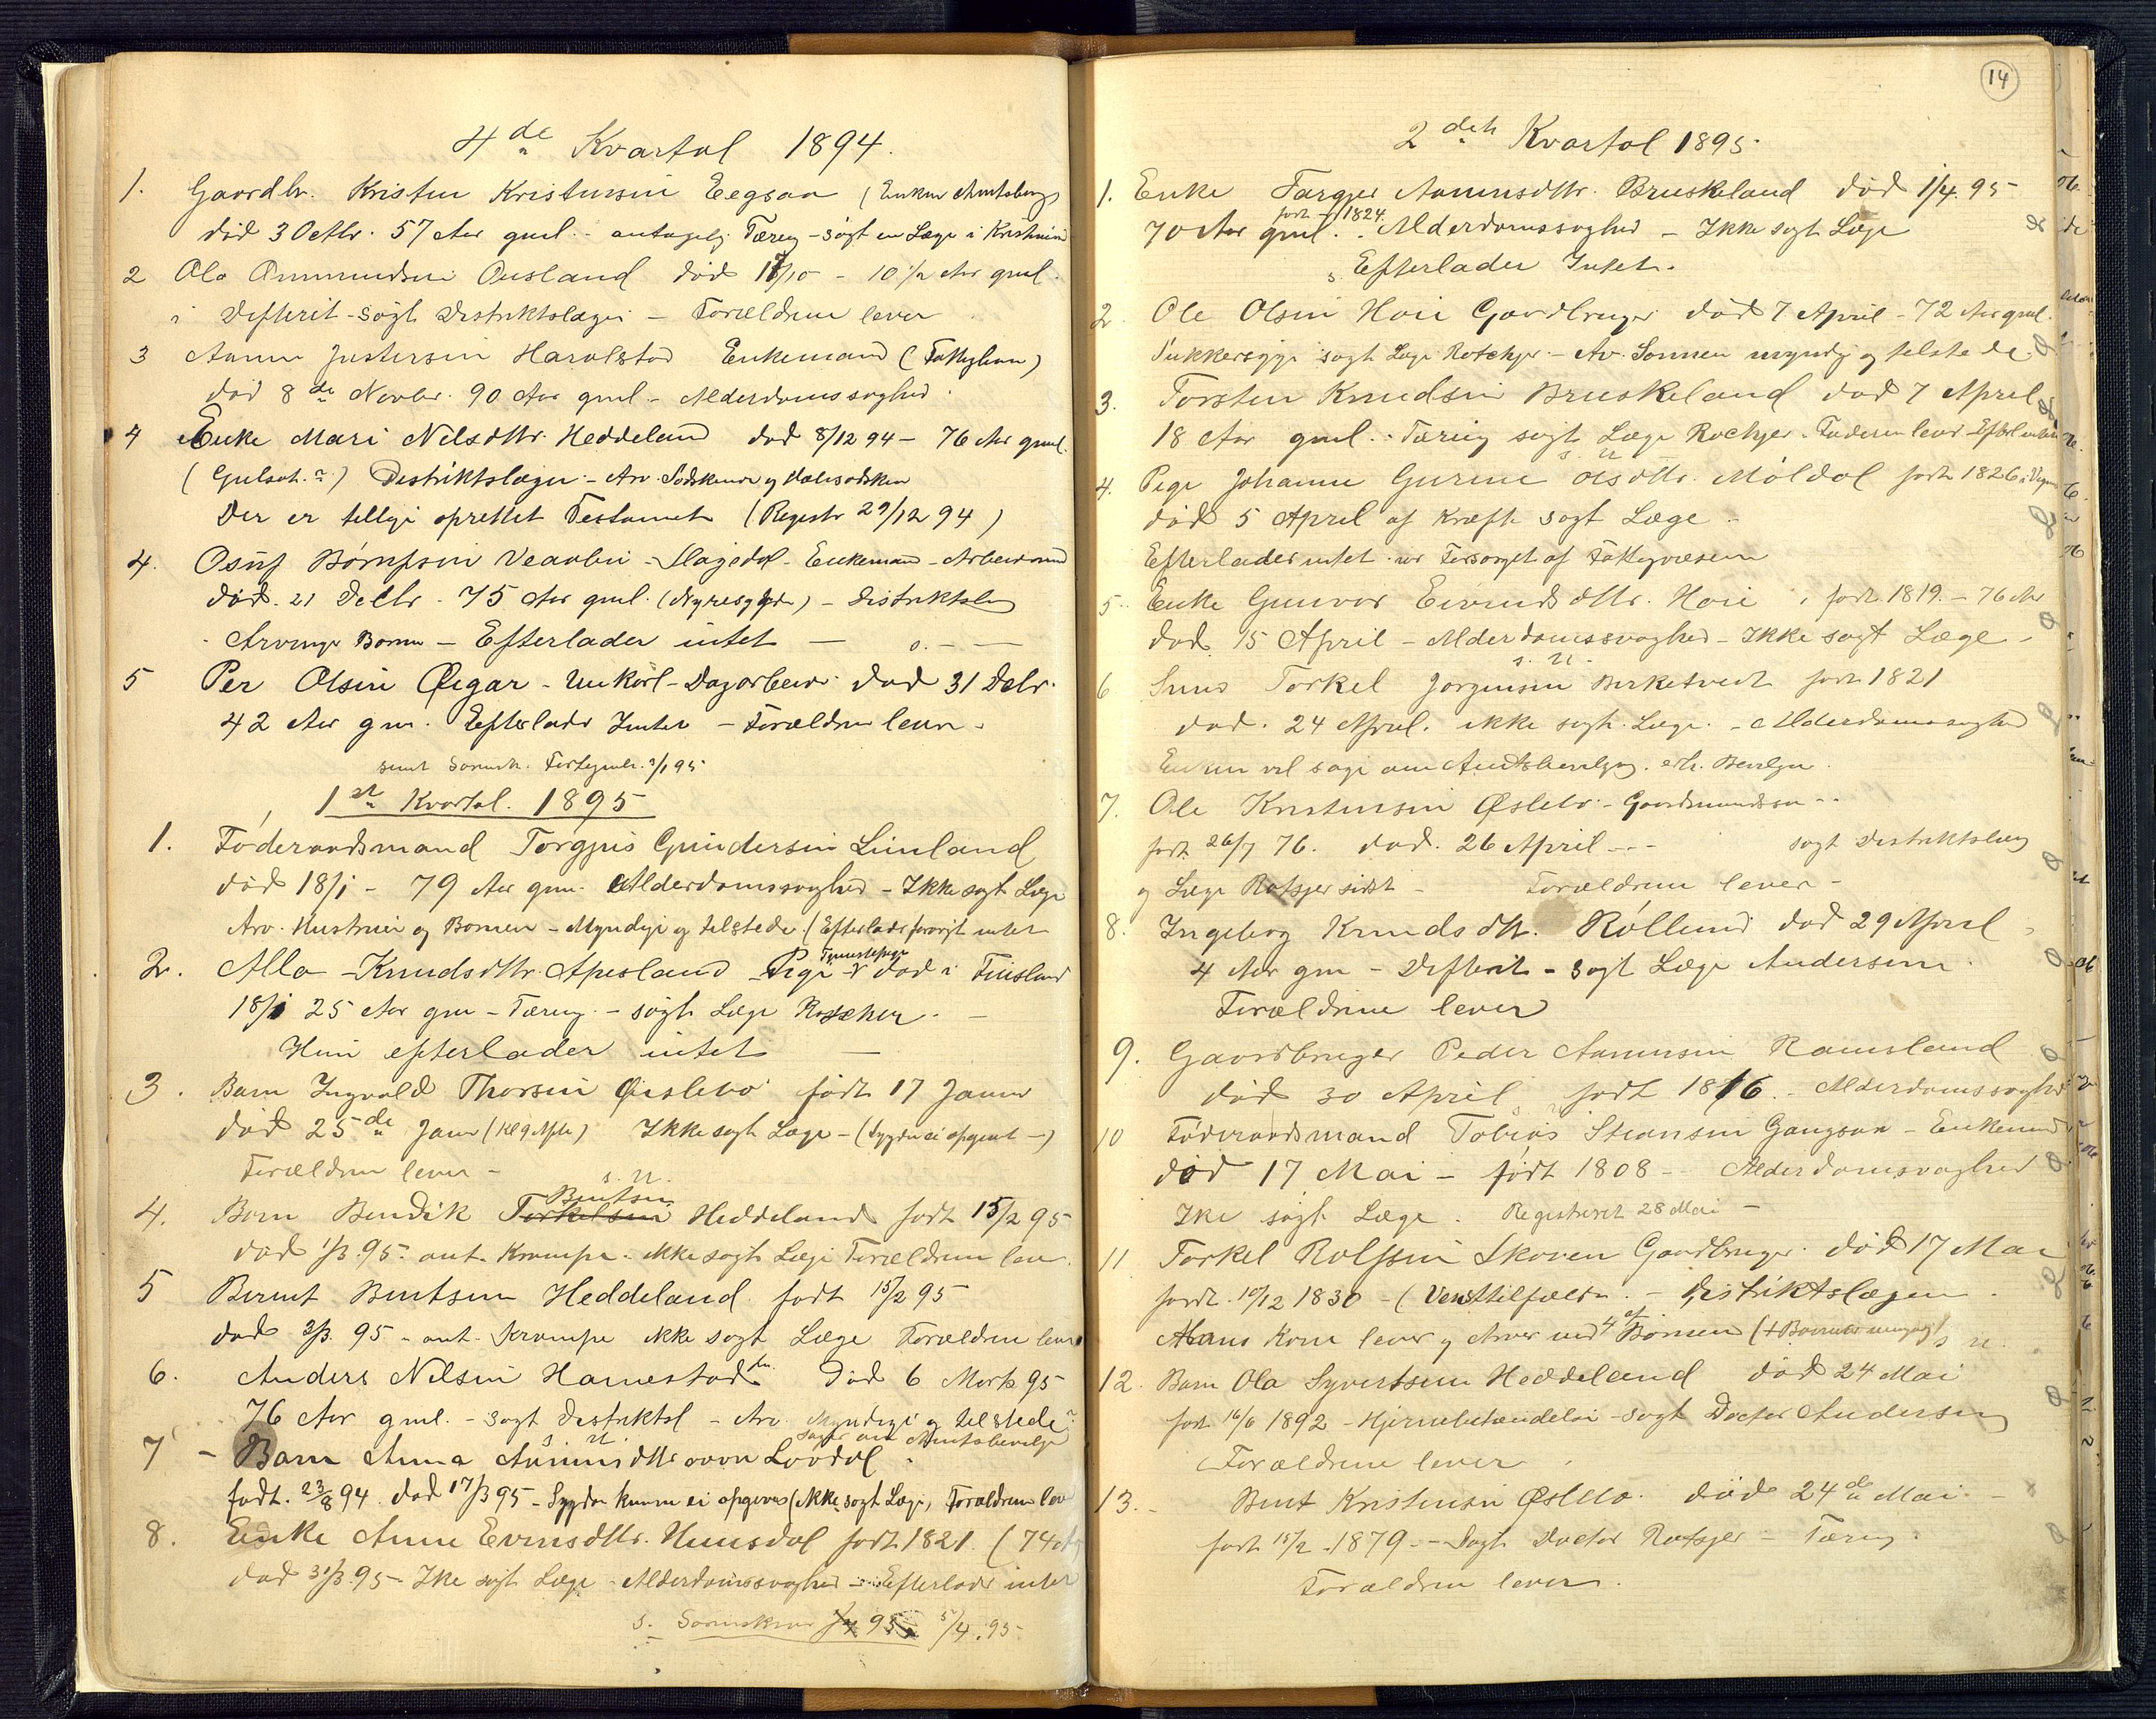 4de Kvartal 1894.
1. Gaardbr. Kristen Kristensen Eegsaa (Enken Amtsbev
död 3 Octbr. 57 Aar gml. - antagelig Tæring - sögt en Læge i Kristiansand
2 Ola Ommundsen Ousland död 17/10 - 10 1/2 Aar gml.
i Difterit - sögt Distriktslægen - Forældrene lever
3 Aanen Justersen Haralstad Enkemand (Fattighus)
död 8de Novbr. 90 Aar gml. - Alderdomssvaghed.
4 Enke Mari Nilsdttr. Heddeland död 8/12 94 - 76 Aar gml.
(Gulsot. ?) Distriktslægen - Arv. Södskende og Halvsödsken
Der er tillige oprettet Testament (Registr 29/12 94)
4. Osuf Börufsen Veaalien - Slagedal - Enkemand - Arbeidsmand
död. 21 Decbr. 75 Aar gml. (Nyresygdom) - Distriktslæg
Arvinge Börn - Efterlader intet —
5 Per Olsen Øigar - Unkarl - Dagarbeider död 31 Decbr.
42 Aar gm. Efterlader Intet - Forældrene lever.
sendt Sorensk. Fortegnelse 2/1 95
1ste Kvartal. 1895
1. Föderaadsmand Torgjus Gundersen Linland
död 18/1 - 79 Aar gm. Alderdomssvaghed - Ikke sögt Læge
Arv. Hustruen og Börnen - Myndige og tilstede (Efterlader forövrigt intet
2. Alla Knudsdttr. Apesland Pige Tjenestepige död i Finsland
18/1 25 Aar gm - Tæring - sögt Læge Rotkjer. —
Hun efterlader intet —
3. Barn Ingvald Thorsen Øislebö födt 17 Januar
död 25de Janr (Kl 9 Aften) Ikke sögt Læge - (Sygdom ei opgivet -)
Forældrene lever -
s. N.
4. Barn Bendik Torkelsen Bentsen Heddeland födt 15/2 95
död 1/3. 95. ant. Krampe. ikke sögt Læge Forældrene lever.
5 Bernt Bentsen Heddeland födt 15/2 95
död 3/3. 95 - ant. Krampe ikke sögt Læge Forældrene lever
6. Anders Nilsen Harnestad död 6 Marts 95
76 Aar gml. - sögt Distriktsl - Arv. Myndige og tilstede
söger om Amtsbevilge
7 - Barn Anna Aanensdttr Loodal.
födt. 23/8 94. död 17/3 95 - Sygdom kunne ei opgives (ikke sögt Læge, Forældrene lever
8. Enke Anne Evensdttr. Hunsdal födt 1821. (74 Aar
död 31/3. 95 - Ike sögt Læge - Alderdomssvaghed - Efterlader intet
s. Sorenskriver 95 5/4. 95
14
2det Kvartal 1895
1. Enke Targjer Aanensdttr. Bruskeland död 1/4. 95
70 Aar gml. födt 1824. Alderdomssvaghed - Ikke sögt Læge
Efterlader Intet.
2. Ole Olsen Hoie Gaardbruger död 7 April - 72 Aar gml.
Sukkersyge sögt Læge Rotkjer - Arv. Sönnen myndig og tilstede.
3. Torsten Knudsen Bruskeland död 7 April
18 Aar gml. - Tæring sögt Læge Rotkjer. Faderen lever - Efterl intet
s. N
4. Pige Johanne Gurine Olsdttr. Möldal födt 1826 i Vegus
död 5 April af Kræft sögt Læge -
Efterlader intet. var Forsörget af Fattigvæsenet
5. Enke Gunvor Eivindsdttr. Hoie, födt 1819. - 76 Aar
död 15 April - Alderdomssvaghed - Ikke sögt Læge -
s. N.
6 Torkel Jörgensen Birketvedt födt 1821
död. 24 April. ikke sögt Læge. - Alderdomssvaghed
Enken vil söge om Amtsbevilgn. erh. Bevilgn.
7. Ole Kristensen Øslebö - Gaardmandssön --
födt 26/7 76. död. 26 April --- sögt Distriktslæg
og Læge Rotkjer sidst - Forældrene lever -
8. Ingeborg Knudsdttr. Röllend död 29 April
4 Aar gm - Difterit - Sögt Læge Andersen.
Forældrene lever
9. Gaardbruger Peder Aanensen Ramsland
död 30 April födt 1816. - Alderdomssvaghed
10 Föderaadsmand Tobias Steensen Gangsaa - Enkemand
död 17 Mai - födt 1808 - Alderdomsvaghed
Ike sögt Læge. Registreret 28 Mai -
11 Torkel Rolfsen Skoven Gaardbruger. död 17 Mai
födt. 10/12 1830 - (Vaadetilfælde. - Distriktslægen.
Hans Kone lever og Arver med 4 af Börnen (1 Barn er umyndigt s N.
12. Barn Ola Syvertsen Heddeland död 24 Mai
födt 16/6 1892 - Hjernebetændelse - sögt Doctor Andersen
Forældrene lever
13. Bent Kristensen Øslebö. död 24de Mai. -
födt 15/2. 1879. - Sögt Doctor Rotkjer - Tæring.
Forældrene lever.